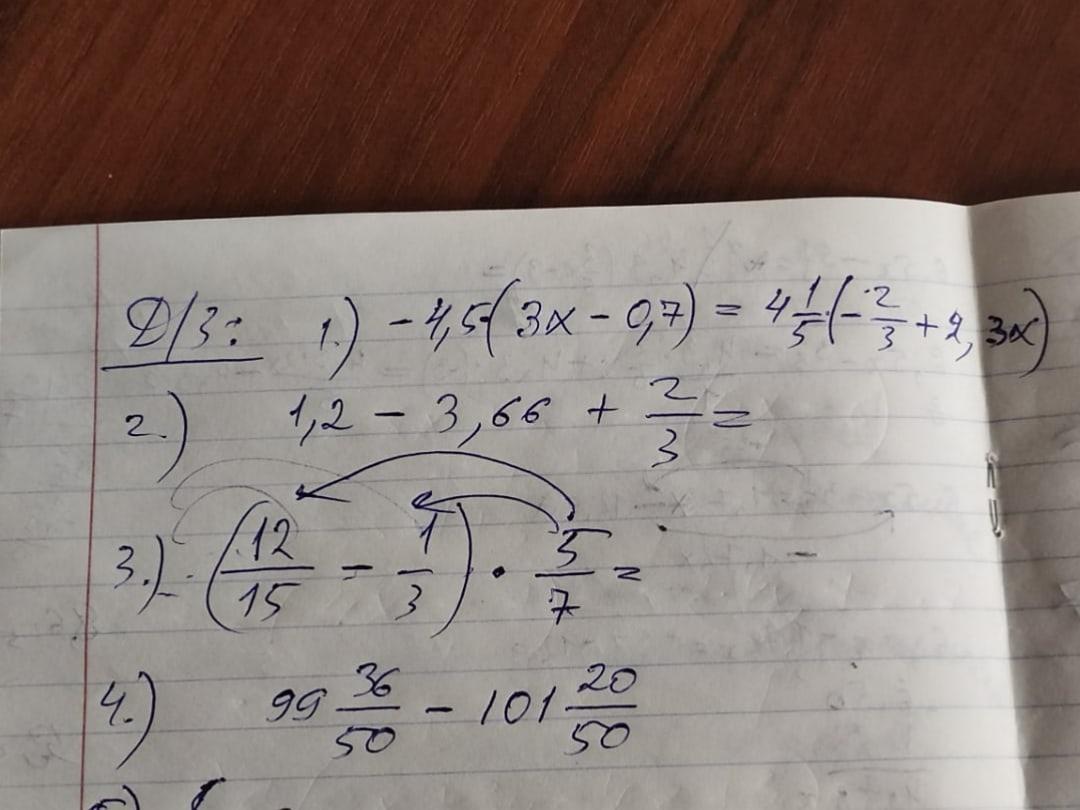 Д/З: 1.) -4,5(3x - 0,7) = 4 1/5 (-2/3 + 2,3x)
2.) 1,2 - 3,66 + 2/3 =
3.) -(12/15 - 1/3) · 5/7 =
4.) 99 36/50 - 101 20/50